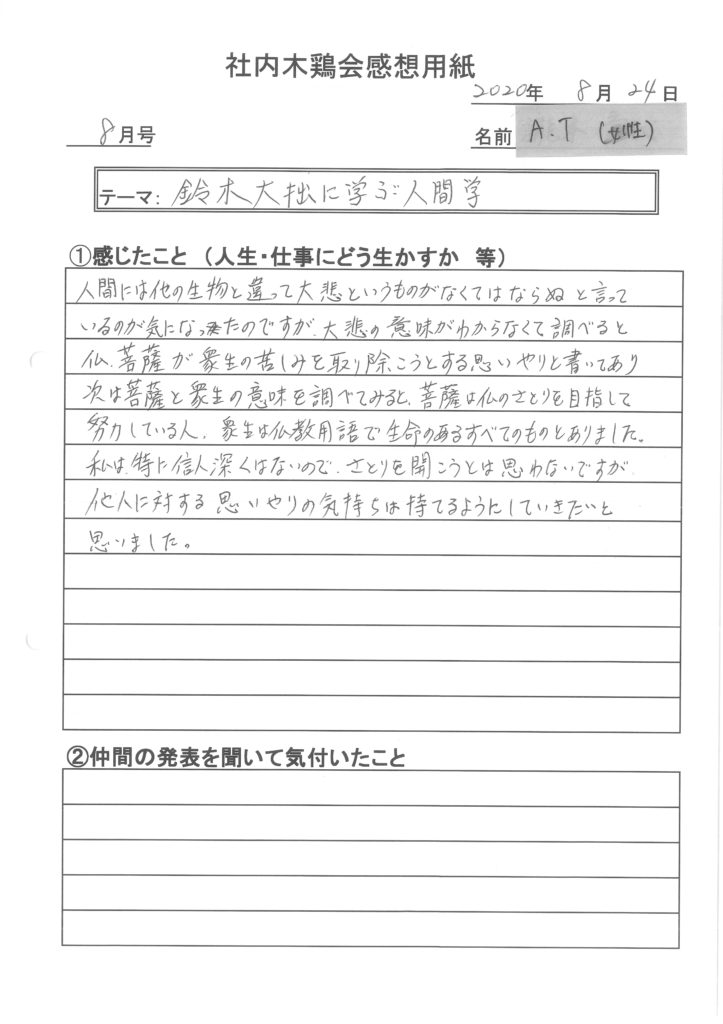 社内木鶏会感想用紙
2020年 8月 24日
8月号
名前 A.T (女性)
テーマ: 鈴木大拙に学ぶ人間学
①感じたこと (人生・仕事にどう生かすか 等)
人間には他の生物と違って大悲というものがなくてはならぬと言って
いるのが気になったのですが、大悲の意味がわからなくて調べると
仏、菩薩が衆生の苦しみを取り除こうとする思いやりと書いてあり
次は菩薩と衆生の意味を調べてみると、菩薩は仏のさとりを目指して
努力している人、衆生は仏教用語で生命のあるすべてのものとありました。
私は、特に信人深くはないので、さとりを開こうとは思わないですが
他人に対する思いやりの気持ちは持てるようにしていきたいと
思いました。
②仲間の発表を聞いて気付いたこと